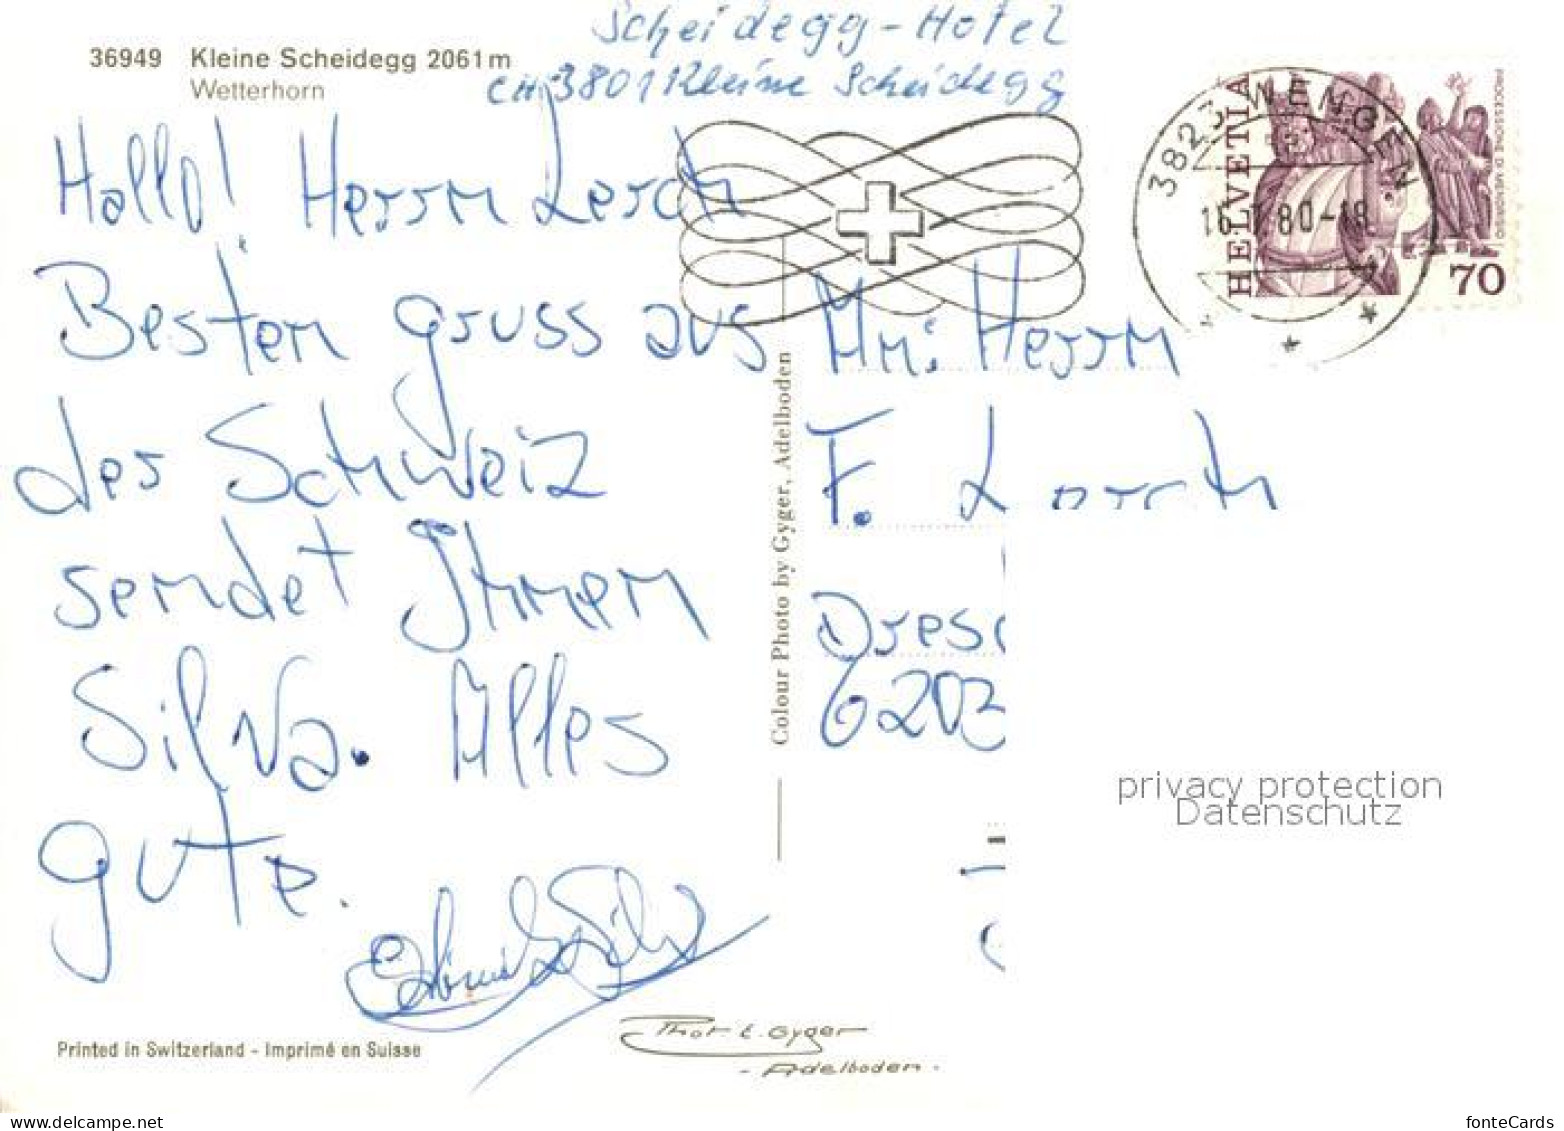 Scheidegg-Hotel
36949 Kleine Scheidegg 2061m
CH 3801 Kleine Scheidegg
Wetterhorn
Hallo! Herrn Lerch
Besten gruss aus
der Schweiz
sendet Ihnen
Silva. Alles
gute.
Printed in Switzerland - Imprimé en Suisse
Phot. E. Gyger
- Adelboden -
Colour Photo by Gyger, Adelboden
3823 WENGEN
80-18
HELVETIA
PROCESSIONE DI MENDRISIO
70
An: Herrn
F. Lerch
Dres
6203
privacy protection
Datenschutz
www.delcampe.net
fonteCards